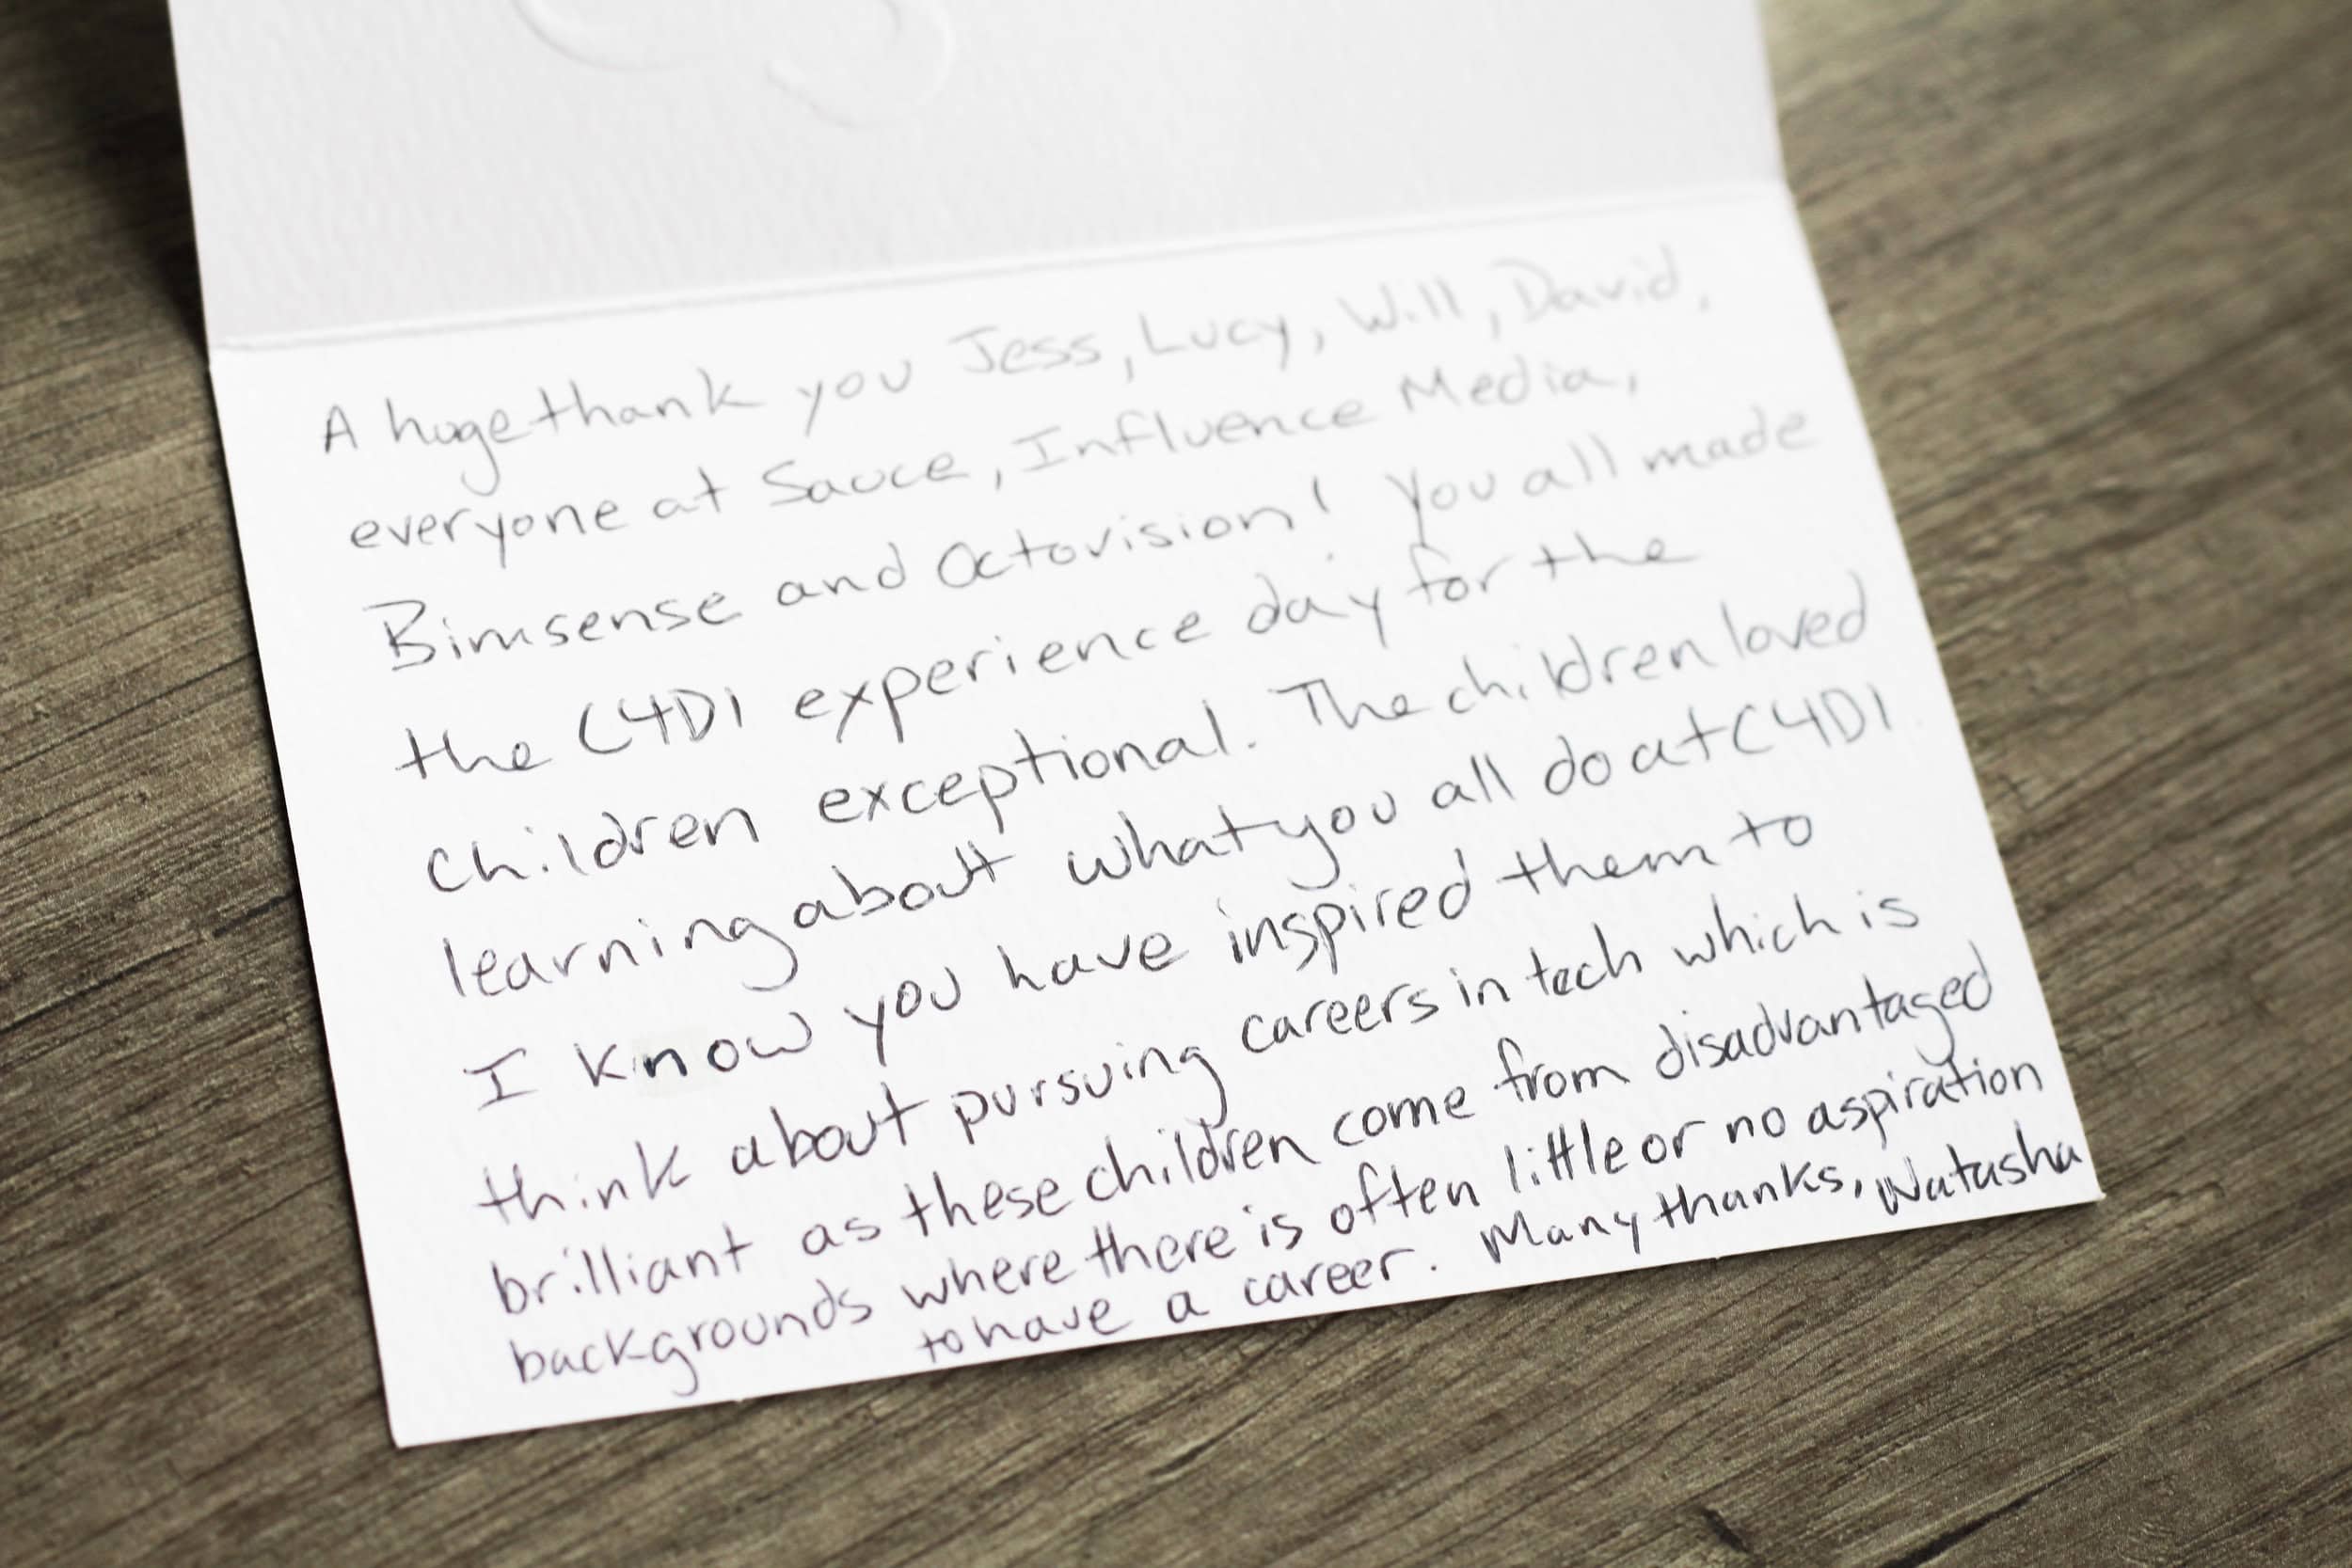 A huge thank you Jess, Lucy, Will, David,
everyone at Sauce, Influence Media,
Bimsense and Octovision! You all made
the C4DI experience day for the
children exceptional. The children loved
learning about what you all do at C4DI.
I know you have inspired them to
think about pursuing careers in tech which is
brilliant as these children come from disadvantaged
backgrounds where there is often little or no aspiration
to have a career. Many thanks, Natasha